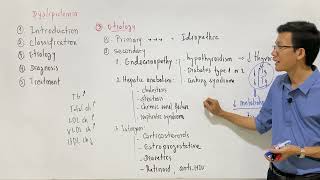 Dyslipidemia
① Introduction
② Classification
③ Etiology
④ Diagnosis
⑤ Treatment
TG ↑
Total ch ↑
LDL ch ↑
VLDL ch ↑
HDL ch ↓
③ Etiology
① Primary +++ → Idiopathic
② Secondary
1. Endocrinopathy
hypothyroidism
Diabetes type 1 or 2
cushing syndrome
2. Hepatic
- cholestasis
- chronic renal failure
- Nephrotic syndrome
3. Iatrogen
- Corticosteroids
- Estroprogestative
- Diuretics
- Retinoid
anti-HIV